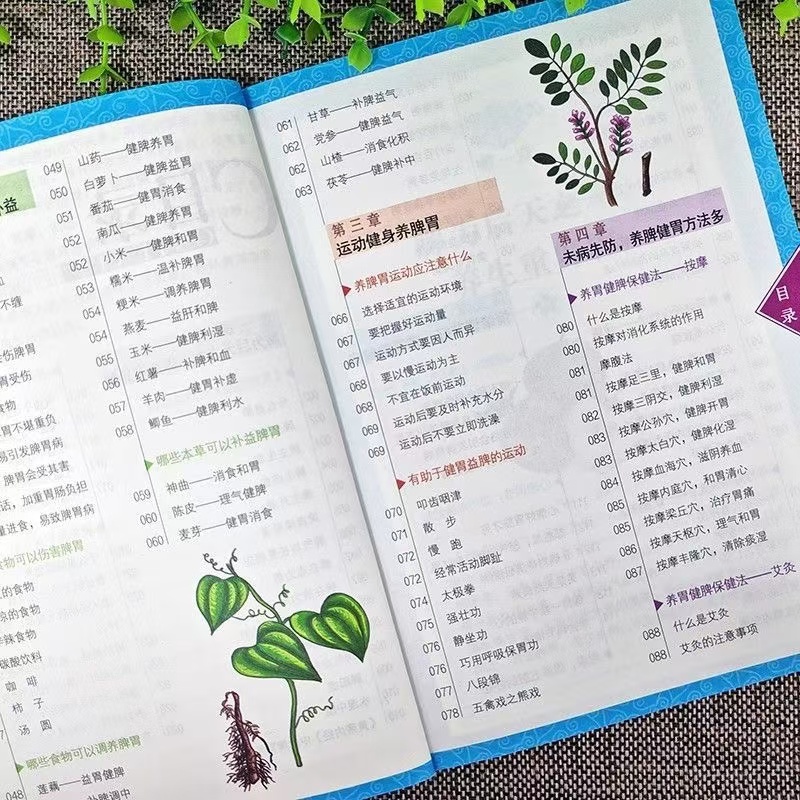 补益
不缠
伤脾胃
胃受伤
食物
胃不堪重负
易引发脾胃病
脾胃会受其害
话，加重胃肠负担
量进食，易致脾胃病
食物可以伤害脾胃
的食物
凉的食物
辛辣食物
碳酸饮料
咖 啡
柿 子
汤 圆
哪些食物可以调养脾胃
048 莲藕——益胃健脾
补脾调中
049 山药——健脾养胃
050 白萝卜——健脾益胃
051 番茄——健胃消食
052 南瓜——健脾养胃
052 小米——健脾和胃
053 糯米——温补脾胃
054 粳米——调养脾胃
054 燕麦——益肝和脾
055 玉米——健脾利湿
056 红薯——补脾和血
057 羊肉——健胃补虚
058 鲫鱼——健脾利水
哪些本草可以补益脾胃
059 神曲——消食和胃
060 陈皮——理气健脾
060 麦芽——健胃消食
061 甘草——补脾益气
062 党参——健脾益气
062 山楂——消食化积
063 茯苓——健脾补中
第三章
运动健身养脾胃
养脾胃运动应注意什么
066 选择适宜的运动环境
067 要把握好运动量
067 运动方式要因人而异
068 要以慢运动为主
068 不宜在饭前运动
069 运动后要及时补充水分
069 运动后不要立即洗澡
有助于健胃益脾的运动
070 叩齿咽津
071 散 步
072 慢 跑
072 经常活动脚趾
074 太极拳
075 强壮功
076 静坐功
076 巧用呼吸保胃功
077 八段锦
078 五禽戏之熊戏
第四章
未病先防，养脾健胃方法多
养胃健脾保健法——按摩
080 什么是按摩
080 按摩对消化系统的作用
081 摩腹法
081 按摩足三里，健脾和胃
082 按摩三阴交，健脾利湿
083 按摩公孙穴，健脾开胃
083 按摩太白穴，健脾化湿
084 按摩血海穴，滋阴养血
085 按摩内庭穴，和胃清心
085 按摩梁丘穴，治疗胃痛
086 按摩天枢穴，理气和胃
087 按摩丰隆穴，清除痰湿
养胃健脾保健法——艾灸
088 什么是艾灸
088 艾灸的注意事项
目录